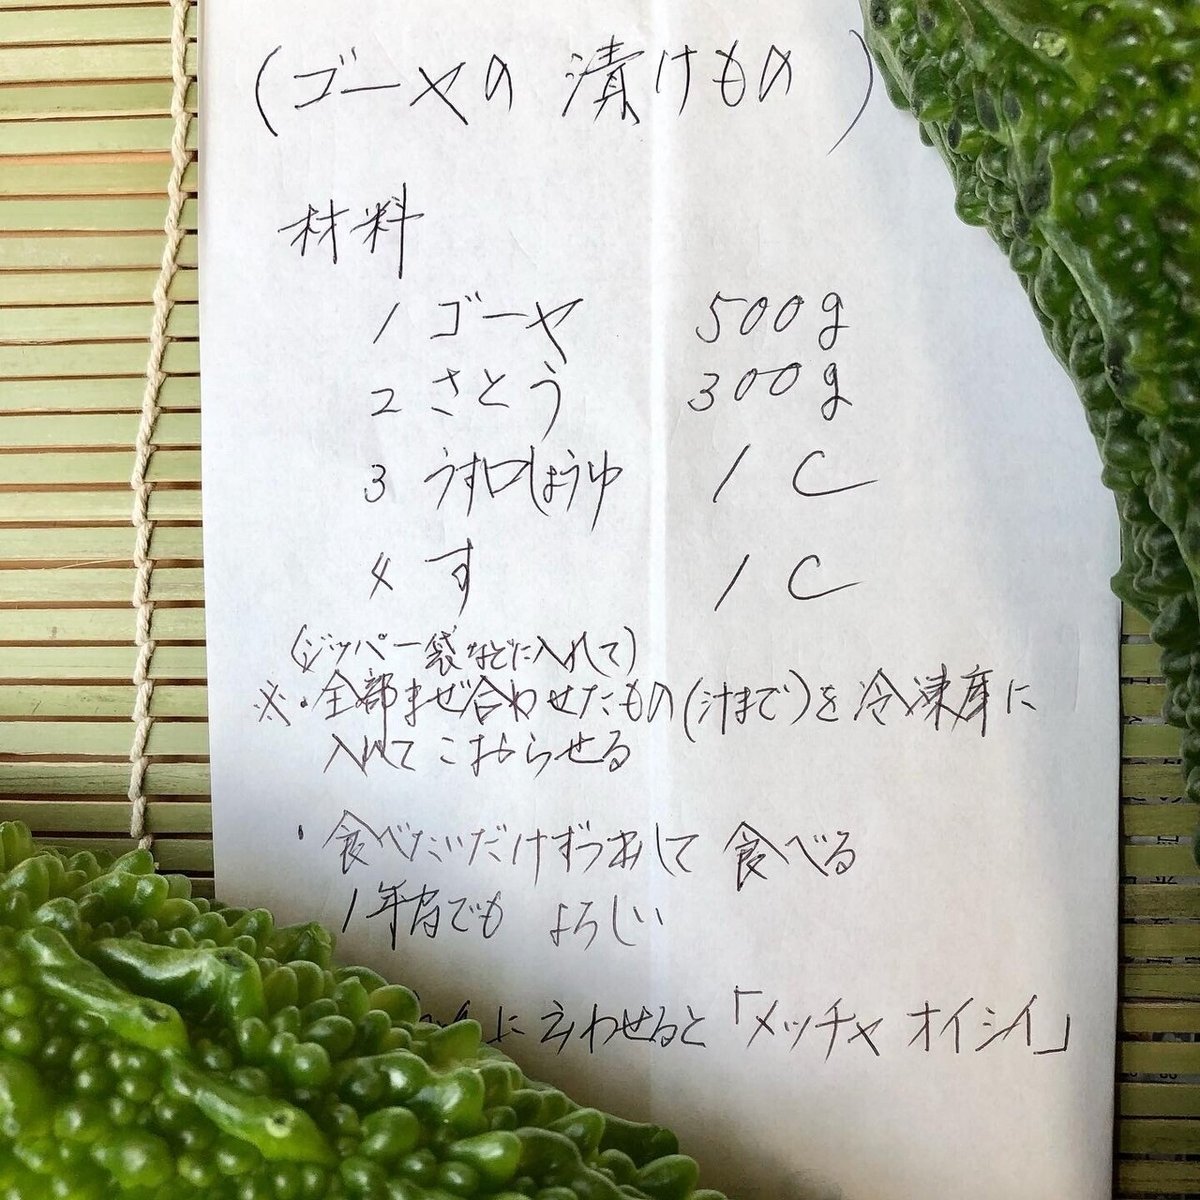 (ゴーヤの漬けもの)
材料
1 ゴーヤ 500g
2 さとう 300g
3 うす口しょうゆ 1C
4 す 1C
(ジッパー袋などに入れて)
※・全部まぜ合わせたもの(汁まで)を冷凍庫に
入れてこおらせる
・食べたいだけずつ出して食べる
1年有でも よろしい
に言わせると「メッチャ オイシイ」